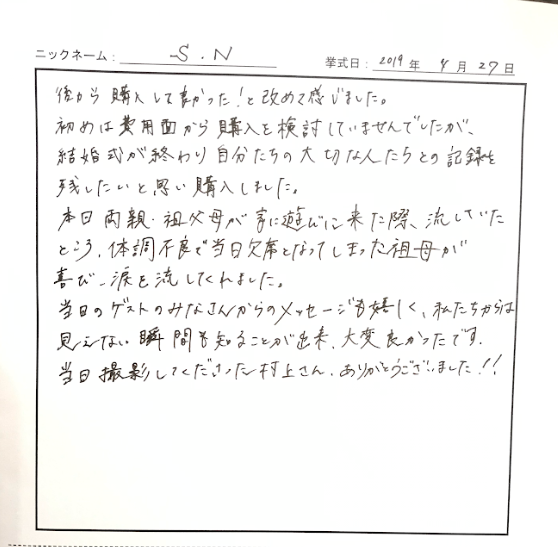 ニックネーム： S.N 挙式日： 2019 年 4 月 27 日
後から購入して良かった！と改めて感じました。
初めは費用面から購入を検討していませんでしたが、
結婚式が終わり自分たちの大切な人たちとの記録を
残したいと思い購入しました。
本日両親・祖父母が家に遊びに来た際、流していた
ところ、体調不良で当日欠席となってしまった祖母が
喜び、涙を流してくれました。
当日のゲストのみなさんからのメッセージも嬉しく、私たちからは
見えない瞬間も知ることが出来、大変良かったです。
当日撮影してくださった村上さん、ありがとうございました！！